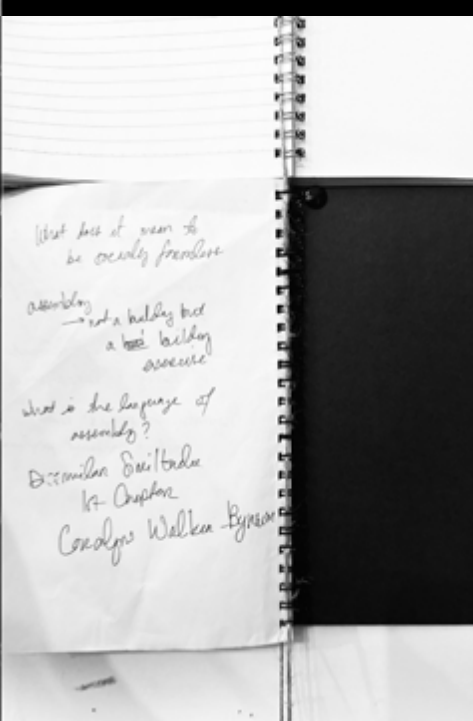 What does it mean to
be overly
assembly
→ not a building but
a building
exercise
What is the language of
assembly?
Dissimilar Similitudes
1st Chapter
Carolyn Walker Bynum